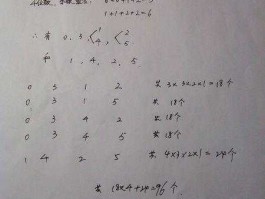 1+1+2+2=6
∴ 有 0, 3, <1 4, <2 5
和 1, 4, 2, 5
0 3 1 2 共 3×3×2×1=18个
0 3 1 5 共 18个
0 3 4 2 共 18个
0 3 4 5 共 18个
1 4 2 5 共 4×3×2×1=24个
共 18×4+24=96个.